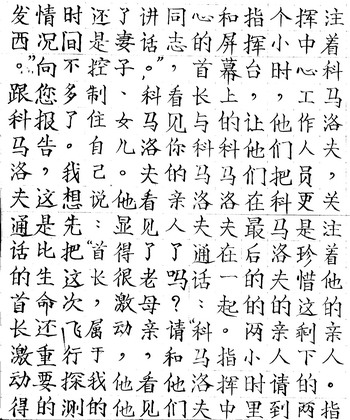 注着科马洛夫,关注着他的亲人。指
挥中心工作人员更是珍惜这剩下的两
个小时,他们把科马洛夫的亲人请到
指挥台,让他们在最后的的两小时里
和屏幕上的科马洛夫在一起。指挥中
心的首长与科马洛夫通话:“科马洛夫
同志,看见你的亲人了吗?请和他们
讲话。”,科马洛夫看见了老母亲,看见
了妻子、女儿。他显得很激动,他
还是控制住自己说:“首长,属于我的
时间不多了。我想先把这次飞行探测的
情况向您报告,这是比生命还重要的
发西。”跟科马洛夫通话的首长激动得